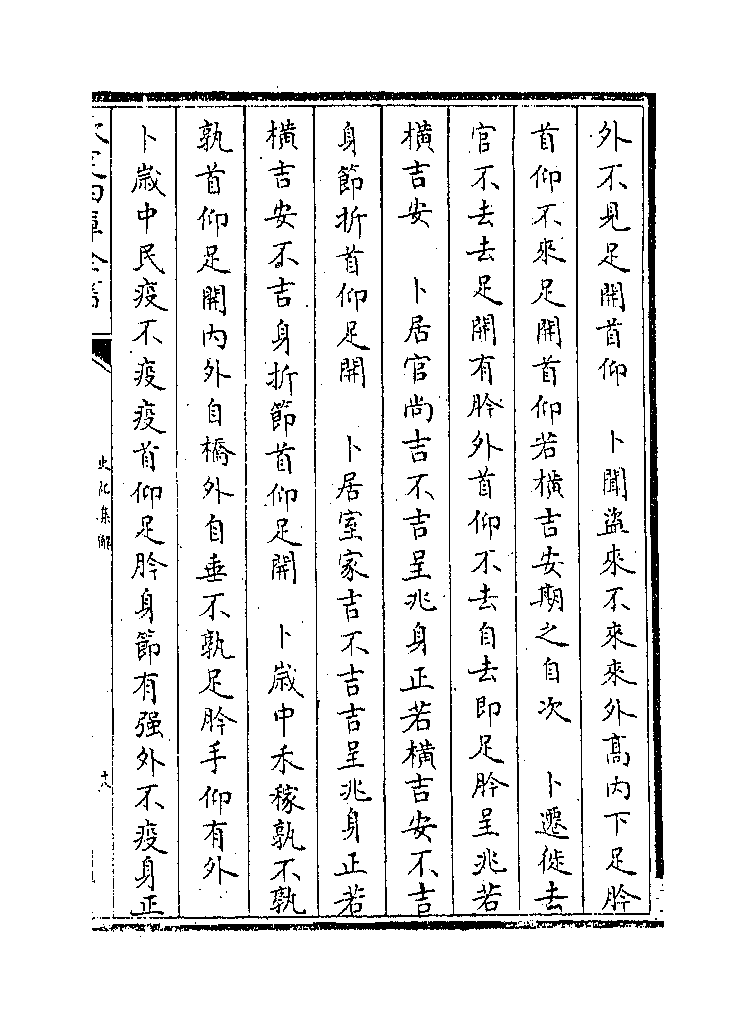 外不見足開首仰　卜聞盜來不來來外高内下足肣
首仰不來足開首仰若橫吉安期之自次　卜遷徙去
官不去去足開有肣外首仰不去自去即足肣呈兆若
橫吉安　卜居官尚吉不吉呈兆身正若橫吉安不吉
身節折首仰足開　卜居室家吉不吉吉呈兆身正若
橫吉安不吉身折節首仰足開　卜嵗中禾稼孰不孰
孰首仰足開内外自橋外自垂不孰足肣手仰有外
卜嵗中民疫不疫疫首仰足肣身節有强外不疫身正
史記集解
十八